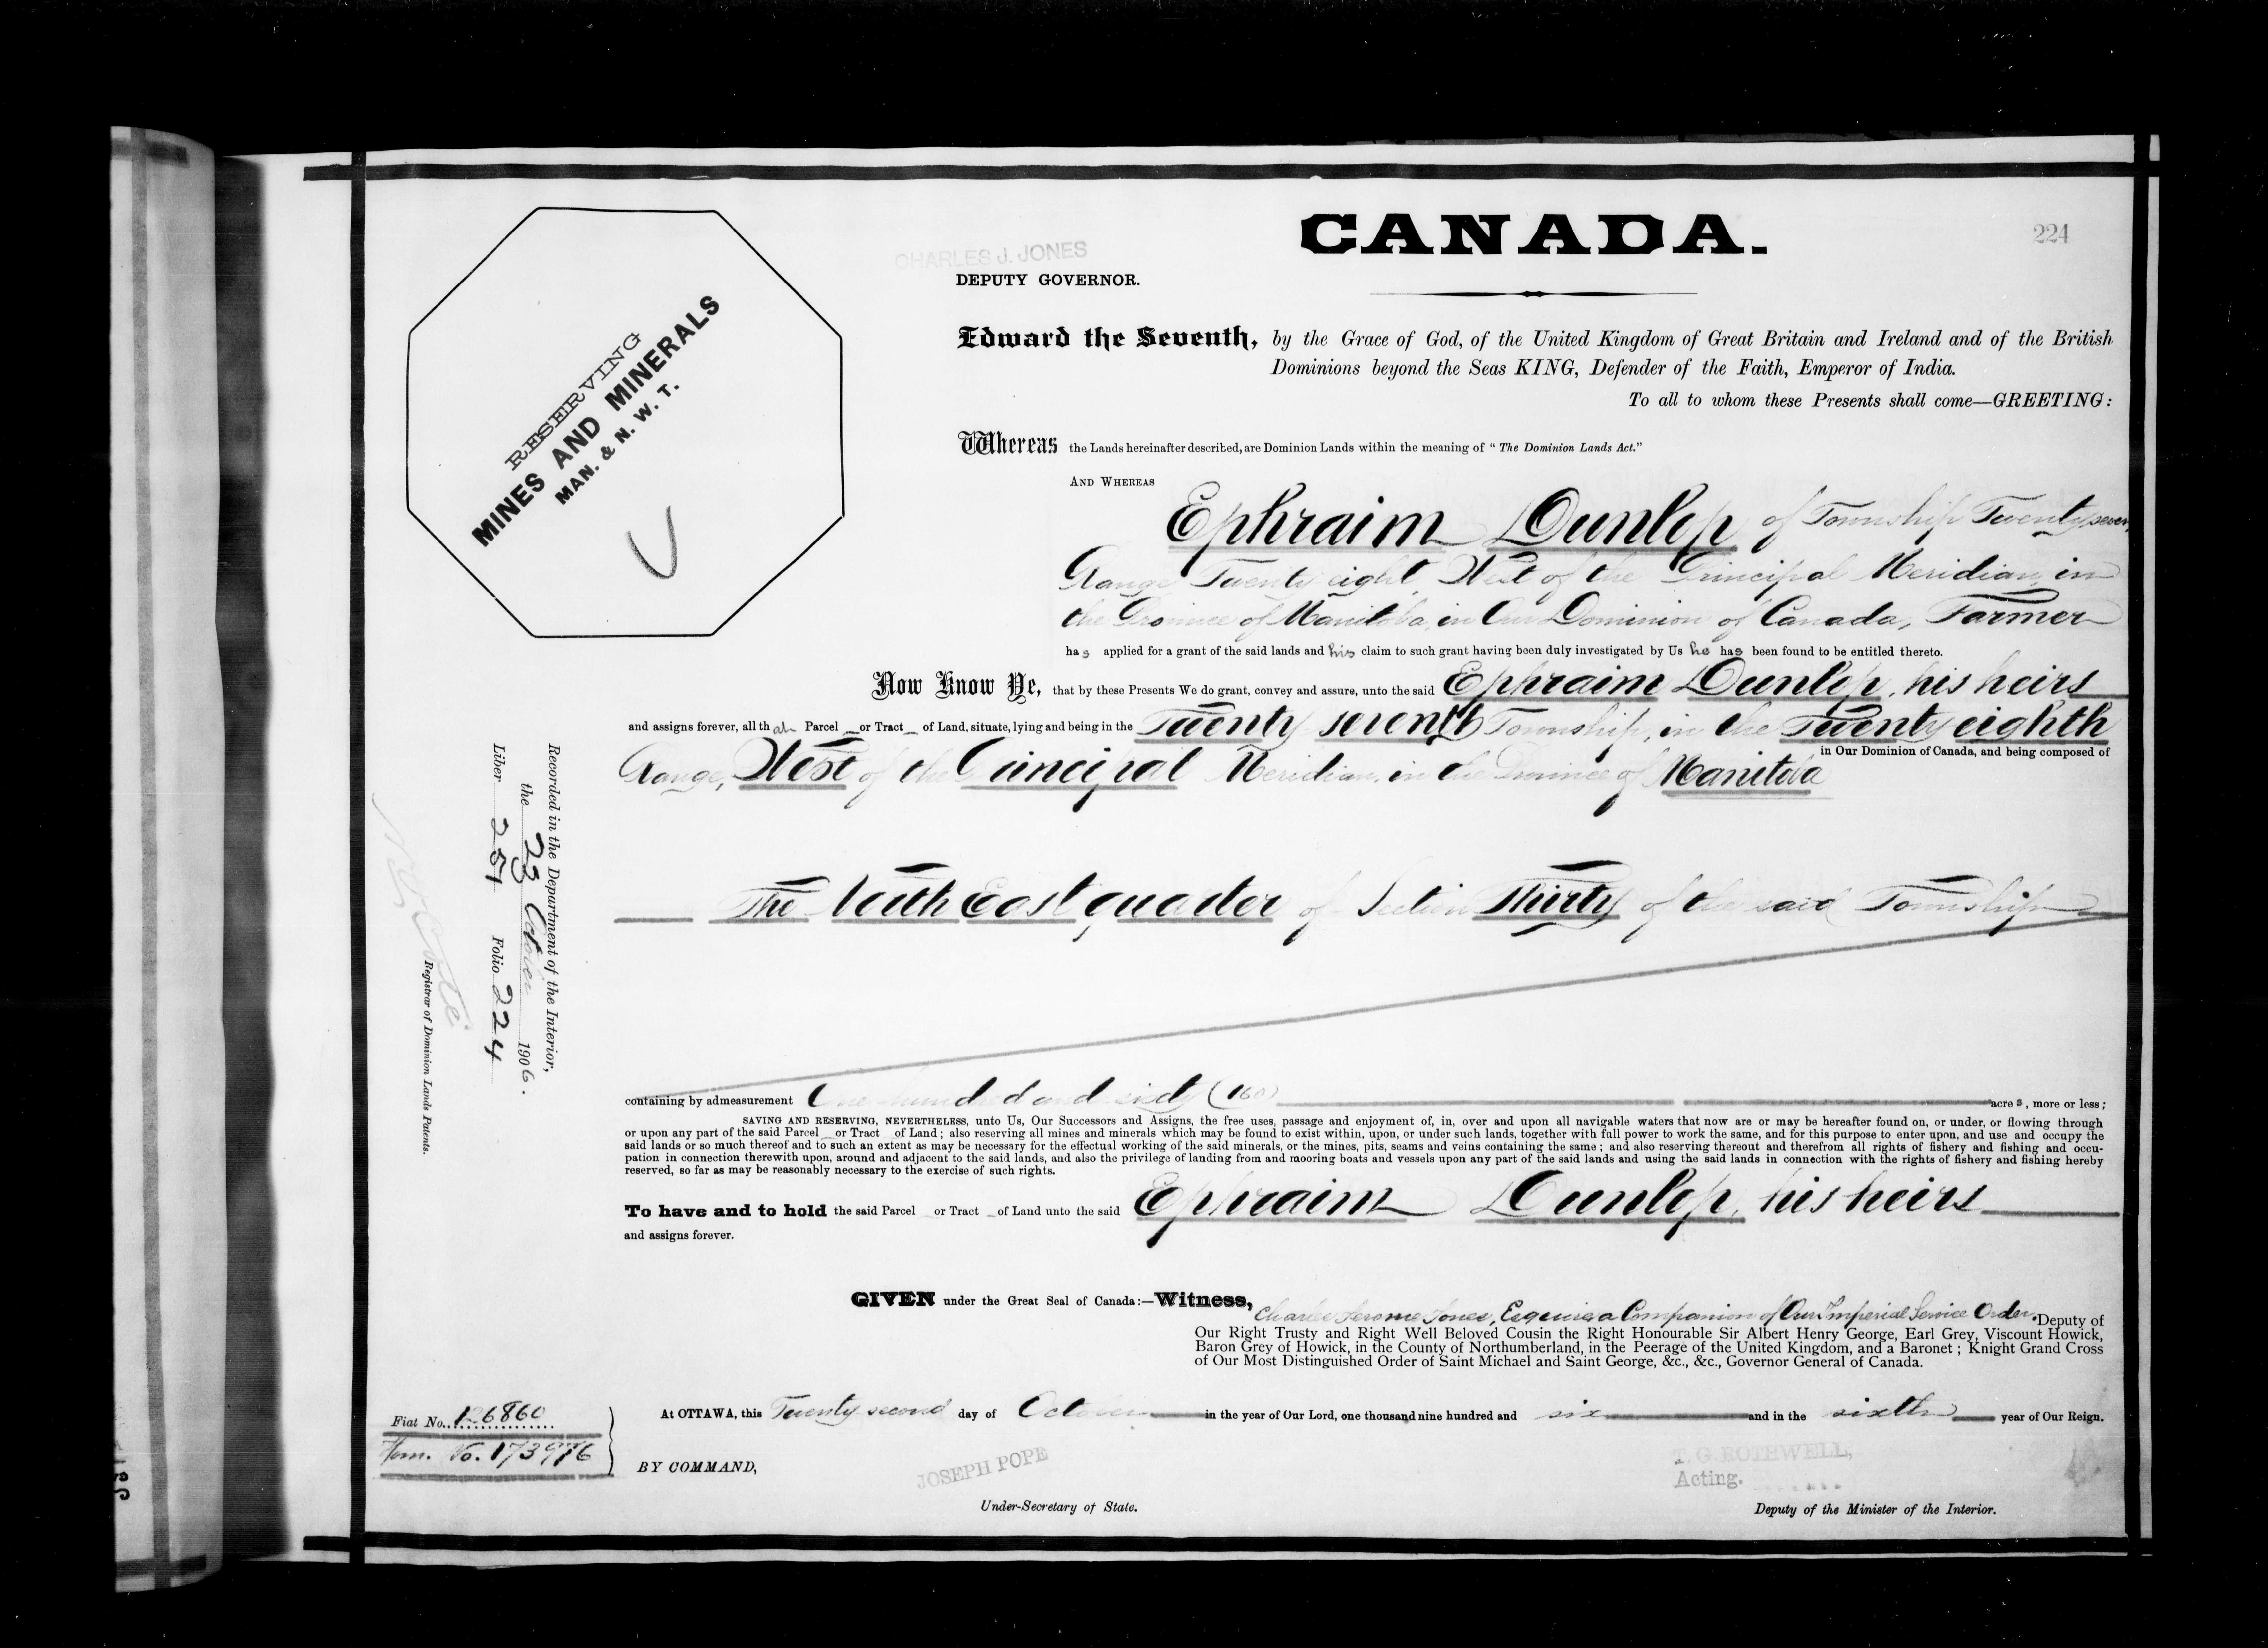 CANADA.
224
CHARLES J. JONES
DEPUTY GOVERNOR.
RESERVING
MINES AND MINERALS
MAN. & N. W. T.
Edward the Seventh, by the Grace of God, of the United Kingdom of Great Britain and Ireland and of the British
Dominions beyond the Seas KING, Defender of the Faith, Emperor of India.
To all to whom these Presents shall come—GREETING:
Whereas the Lands hereinafter described, are Dominion Lands within the meaning of "The Dominion Lands Act."
AND WHEREAS
Ephraim Dunlop of Township Twenty seven,
Range Twenty eight, West of the Principal Meridian, in
the Province of Manitoba, in Our Dominion of Canada, Farmer
has applied for a grant of the said lands and his claim to such grant having been duly investigated by Us he has been found to be entitled thereto.
Now Know Ye, that by these Presents We do grant, convey and assure, unto the said Ephraim Dunlop, his heirs
and assigns forever, all that Parcel or Tract of Land, situate, lying and being in the Twenty seventh Township, in the Twenty eighth
in Our Dominion of Canada, and being composed of
Range, West of the Principal Meridian, in the Province of Manitoba
The North East quarter of Section Thirty of the said Township
containing by admeasurement One hundred and sixty (160) acres, more or less;
SAVING AND RESERVING, NEVERTHELESS, unto Us, Our Successors and Assigns, the free uses, passage and enjoyment of, in, over and upon all navigable waters that now are or may be hereafter found on, or under, or flowing through
or upon any part of the said Parcel or Tract of Land; also reserving all mines and minerals which may be found to exist within, upon, or under such lands, together with full power to work the same, and for this purpose to enter upon, and use and occupy the
said lands or so much thereof and to such an extent as may be necessary for the effectual working of the said minerals, or the mines, pits, seams and veins containing the same; and also reserving thereout and therefrom all rights of fishery and fishing and occu-
pation in connection therewith upon, around and adjacent to the said lands, and also the privilege of landing from and mooring boats and vessels upon any part of the said lands and using the said lands in connection with the rights of fishery and fishing hereby
reserved, so far as may be reasonably necessary to the exercise of such rights.
To have and to hold the said Parcel or Tract of Land unto the said Ephraim Dunlop, his heirs
and assigns forever.
GIVEN under the Great Seal of Canada:—Witness, Charles Jerome Jones, Esquire, a Companion of Our Imperial Service Order. Deputy of
Our Right Trusty and Right Well Beloved Cousin the Right Honourable Sir Albert Henry George, Earl Grey, Viscount Howick,
Baron Grey of Howick, in the County of Northumberland, in the Peerage of the United Kingdom, and a Baronet; Knight Grand Cross
of Our Most Distinguished Order of Saint Michael and Saint George, &c., &c., Governor General of Canada.
At OTTAWA, this Twenty second day of October in the year of Our Lord, one thousand nine hundred and six and in the sixth year of Our Reign.
Fiat No. 126860
Hom. No. 173976
BY COMMAND,
JOSEPH POPE
Under-Secretary of State.
T. G. ROTHWELL,
Acting.
Deputy of the Minister of the Interior.
Recorded in the Department of the Interior,
the 23 October 1906.
Liber 251 Folio 224
Registrar of Dominion Lands Patents.